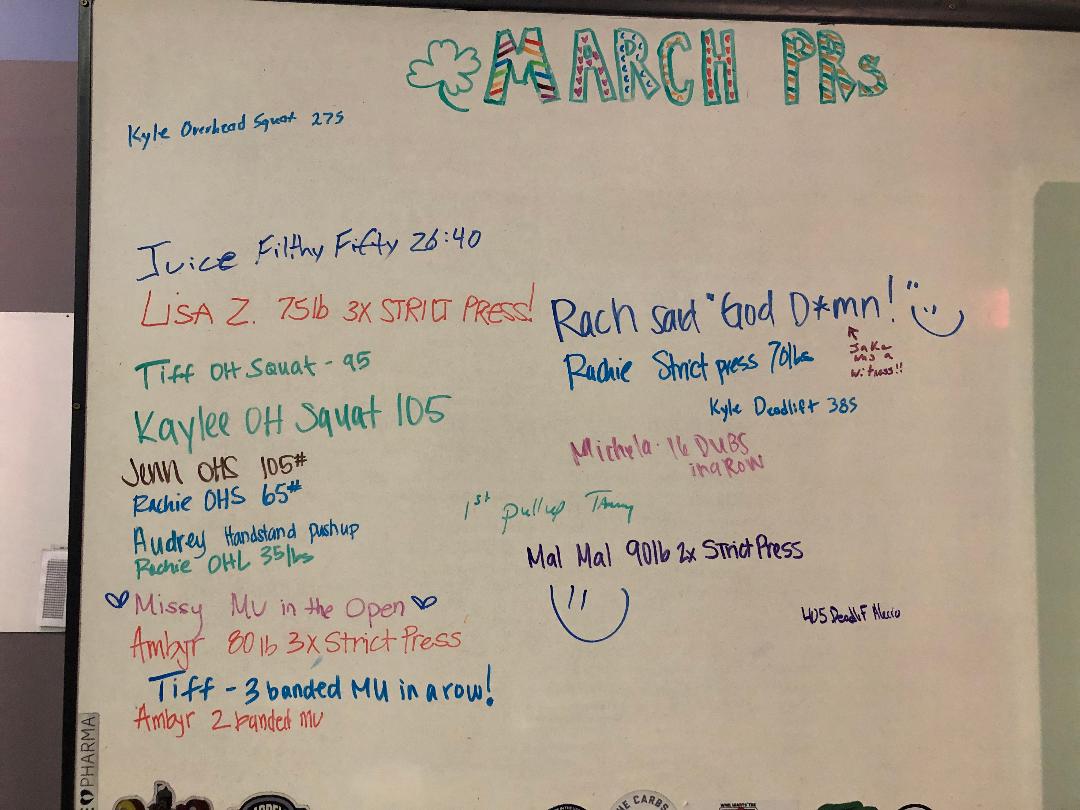 MARCH PRs
Kyle Overhead Squat 275
Juice Filthy Fifty 26:40
LISA Z. 75lb 3X STRICT PRESS!
Tiff OH Squat - 95
Kaylee OH Squat 105
Jenn OHS 105#
Rachie OHS 65#
Audrey Handstand pushup
Rachie OHL 35lbs
Missy MU in the Open
Ambyr 80lb 3x Strict Press
Tiff - 3 banded MU in a row!
Ambyr 2 banded mu
Rach said "God D*mn!"
Jake
was a
witness!!
Rachie Strict press 70lbs
Kyle Deadlift 385
Michela - 16 DUBS
in a ROW
1st pullup
Mal Mal 90lb 2x Strict Press
405 Deadlif
PHARMA
THE CARBS